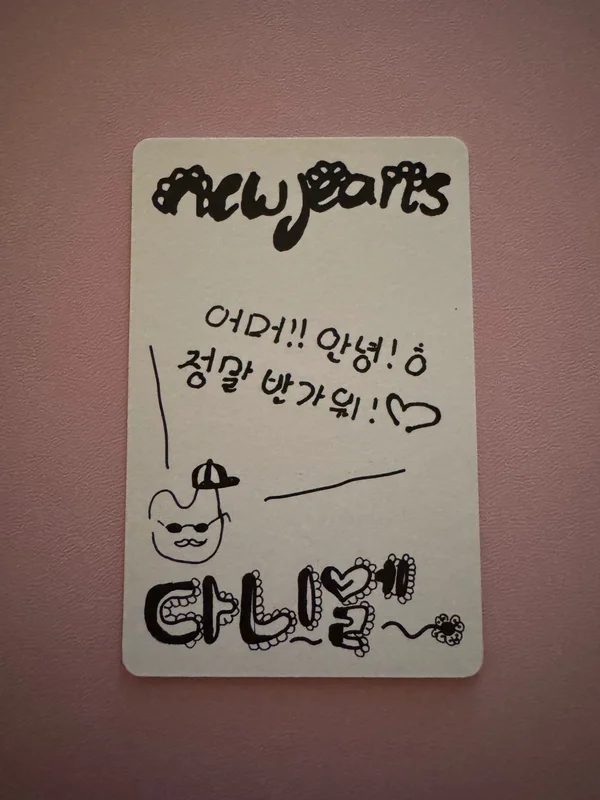 newjeans
어머!! 안녕!ㅎ
정말 반가워!♡
다니엘